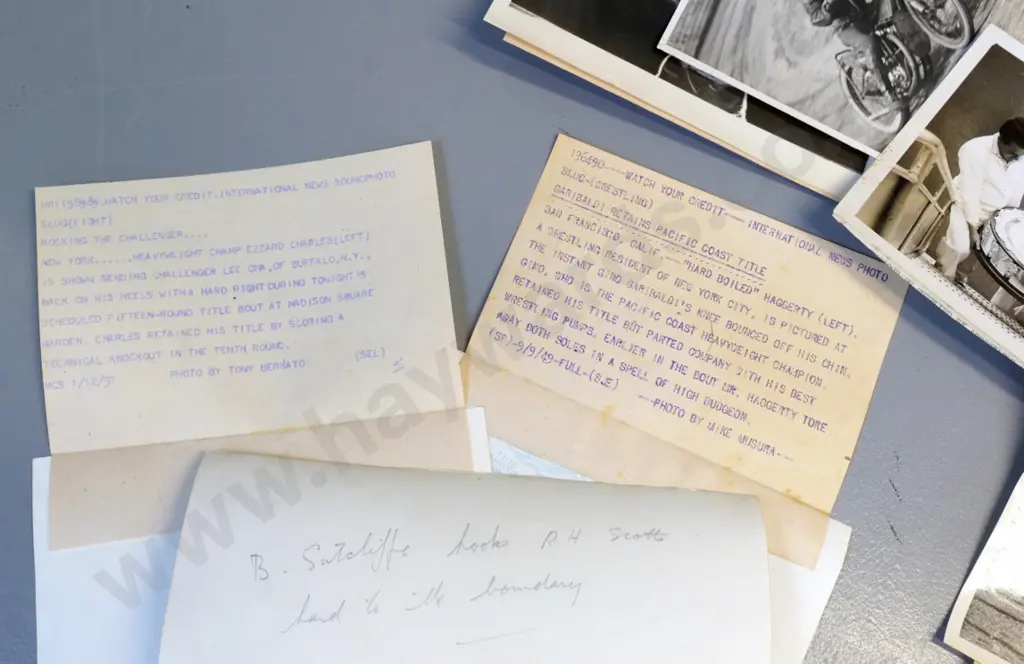 WATCH YOUR CREDIT. INTERNATIONAL NEWS SOUNDPHOTO
SLUG(FIGHT)
ROCKING THE CHALLENGER....
NEW YORK......HEAVYWEIGHT CHAMP EZZARD CHARLES(LEFT)
IS SHOWN SENDING CHALLENGER LEE OMA, OF BUFFALO, N.Y.,
BACK ON HIS HEELS WITH A HARD RIGHT DURING TONIGHT'S
SCHEDULED FIFTEEN-ROUND TITLE BOUT AT MADISON SQUARE
GARDEN. CHARLES RETAINED HIS TITLE BY SCORING A
TECHNICAL KNOCKOUT IN THE TENTH ROUND.
PHOTO BY TONY (SEL)
136490----WATCH YOUR CREDIT---- INTERNATIONAL NEWS PHOTO
SLUG-(WRESTLING)
GARIBALDI RETAINS PACIFIC COAST TITLE
SAN FRANCISCO, CALIF---"HARD BOILED" HAGGERTY (LEFT),
A WRESTLING RESIDENT OF NEW YORK CITY, IS PICTURED AT
THE INSTANT GINO GARIBALDI'S KNEE BOUNCED OFF HIS CHIN.
GINO, WHO IS THE PACIFIC COAST HEAVYWEIGHT CHAMPION,
RETAINED HIS TITLE BUT PARTED COMPANY WITH HIS BEST
WRESTLING PUMPS. EARLIER IN THE BOUT MR. HAGGERTY TORE
AWAY BOTH SOLES IN A SPELL OF HIGH DUDGEON.
----PHOTO BY MIKE MUSURA----
(SF)-9/9/49-FULL-(SJE)
B. Sutcliffe hooks R H Scott
hard to the boundary
www.hay